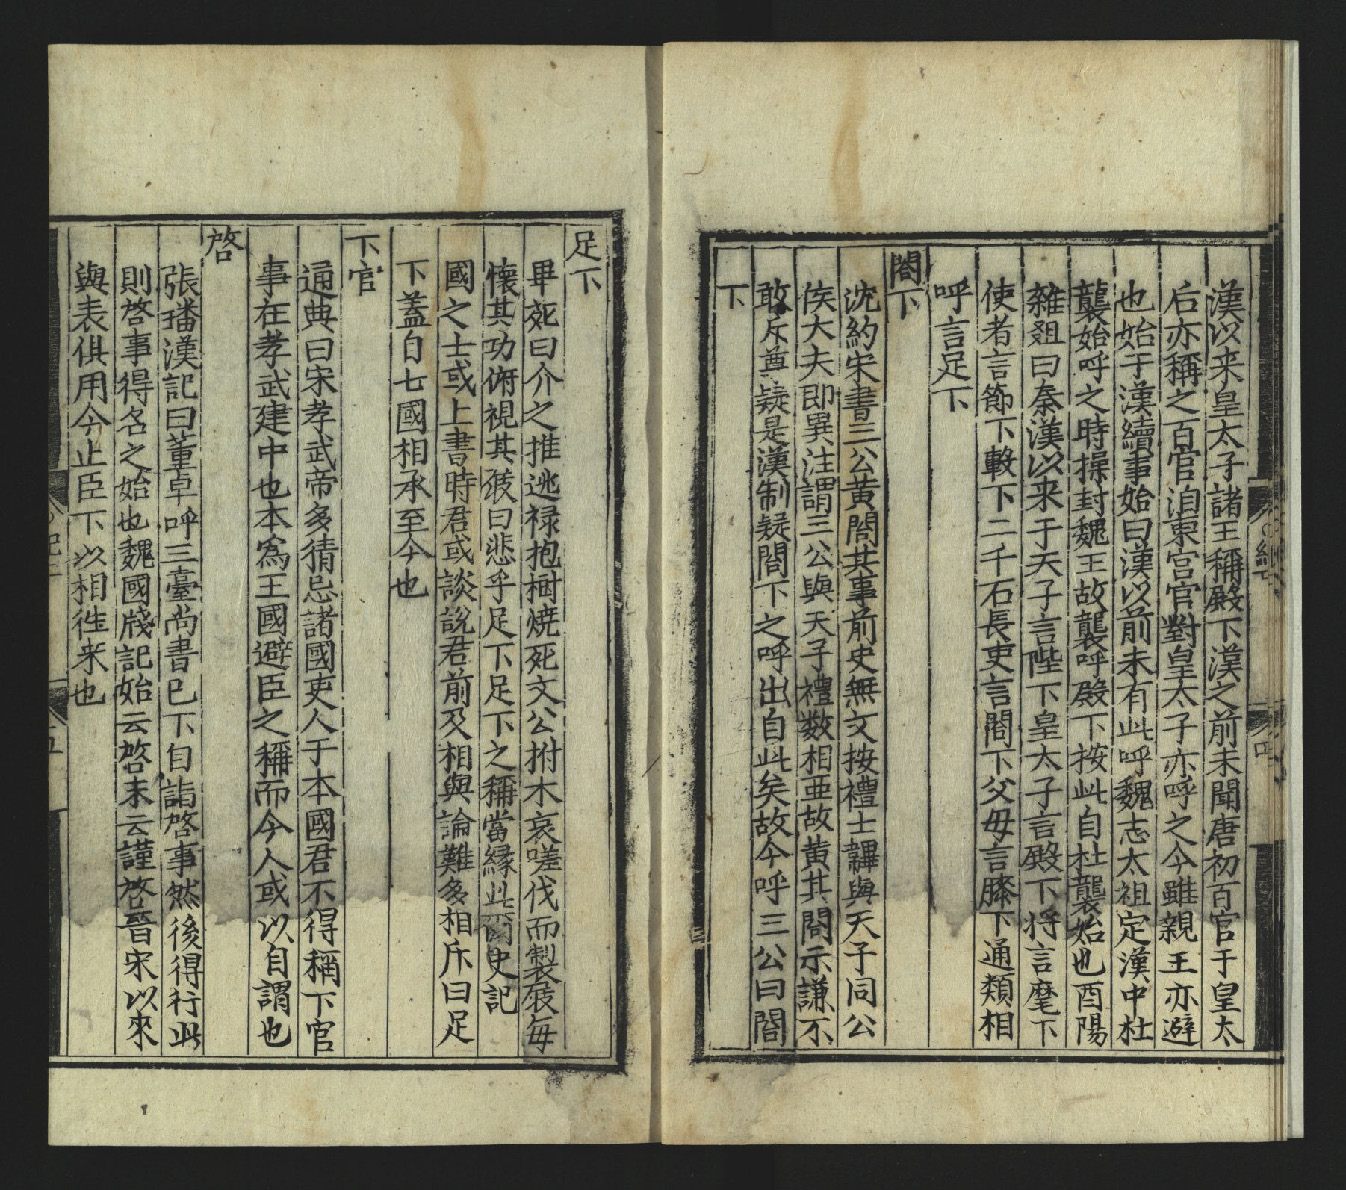 漢以来皇太子諸王稱殿下漢之前未聞唐初百官于皇太
后亦稱之百官洎東宮官對皇太子亦呼之今雖親王亦避
也始于漢續事始曰漢以前未有此呼魏志太祖定漢中杜
襲始呼之時操封魏王故襲呼殿下按此自杜襲始也酉陽
雜爼曰秦漢以来于天子言陛下皇太子言殿下将言麾下
使者言節下轂下二千石長吏言閤下父母言膝下通類相
呼言足下
閤下
沈約宋書三公黄閤其事前史無文按禮士韠與天子同公
侯大夫即異注謂三公與天子禮数相亜故黄其閤示謙不
敢斥尊疑是漢制疑閤下之呼出自此矣故今呼三公曰閤
下
足下
異苑曰介之推逃禄抱樹燒死文公拊木哀嗟伐而製屐每
懐其功俯視其屐曰悲乎足下足下之稱當縁此爾史記
國之士或上書時君或談說君前及相與論難多相斥曰足
下蓋自七國相承至今也
下官
通典曰宋孝武帝多猜忌諸國吏人于本國君不得稱下官
事在孝武建中也本為王國避臣之稱而今人或以自謂也
啓
張璠漢記曰董卓呼三臺尚書已下自詣啓事然後得行此
則啓事得名之始也魏國牋記始云啓末云謹啓晉宋以來
與表俱用今止臣下以相徃来也